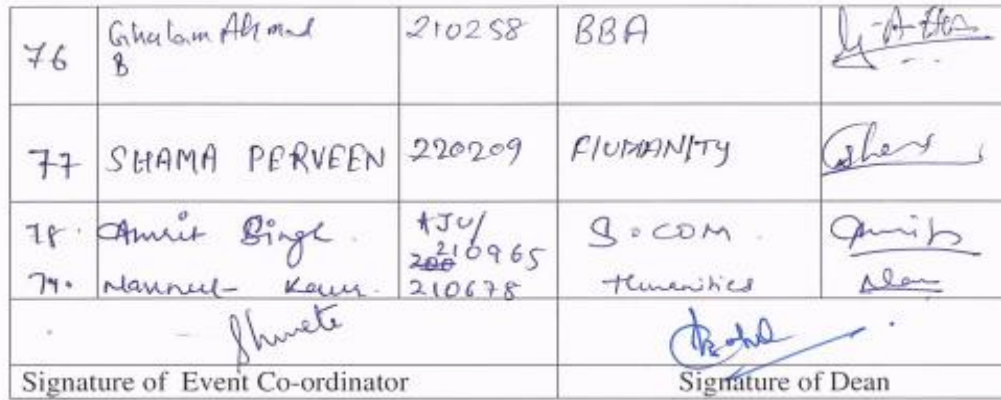 76 Ghulam Ahmad 210258 BBA
77 SHAMA PERVEEN 220209 HUMANITY
78. Amrit Singh. AJU/ S.COM.
210965
79. Kaur. 210678 Humanities
Shweta
Signature of Event Co-ordinator Signature of Dean